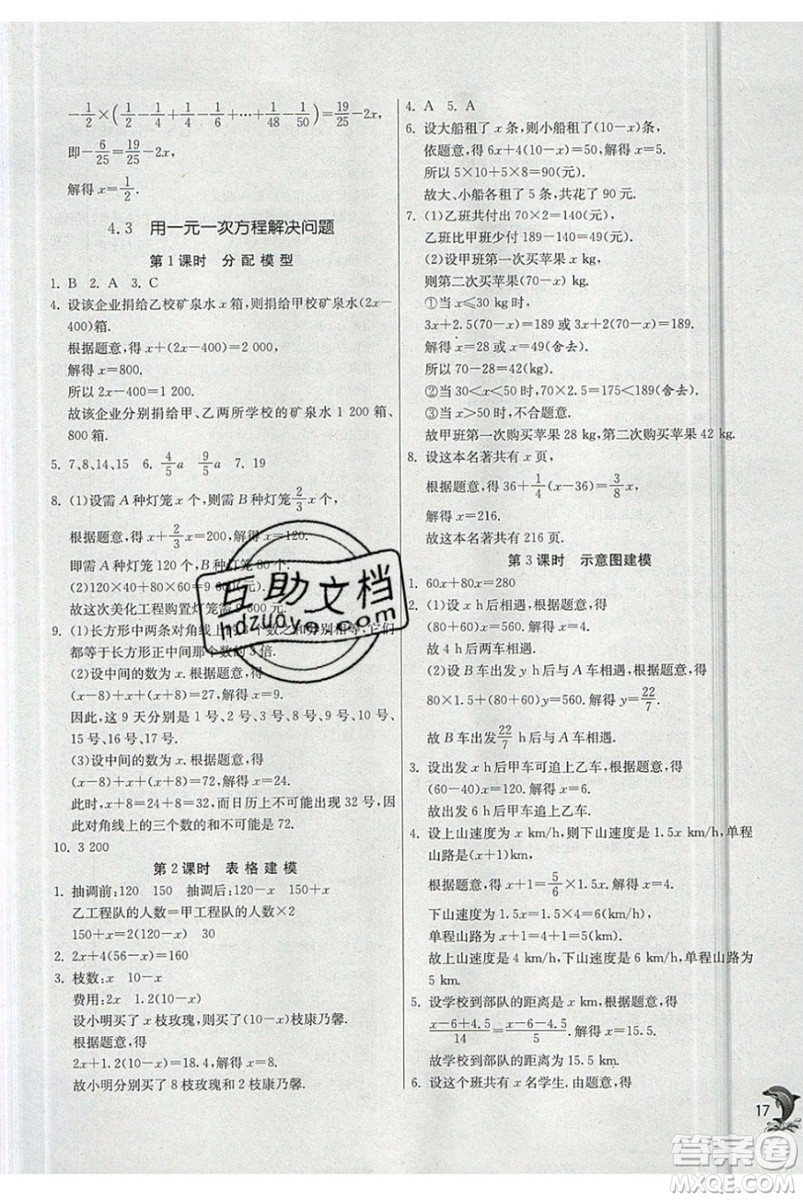 -1/2×(1/2-1/4+1/4-1/6+…+1/48-1/50)=19/25-2x,
即-6/25=19/25-2x,
解得 x=1/2.
4.3 用一元一次方程解决问题
第1课时 分配模型
1. B 2. A 3. C
4. 设该企业捐给乙校矿泉水 x 箱,则捐给甲校矿泉水(2x-
400)箱.
根据题意,得 x+(2x-400)=2 000,
解得 x=800.
所以 2x-400=1 200.
故该企业分别捐给甲、乙两所学校的矿泉水 1 200 箱、
800 箱.
5. 7、8、14、15 6. 4/5a 9/5a 7. 19
8. (1)设需 A 种灯笼 x 个,则需 B 种灯笼 2/3x 个,
根据题意,得 x+2/3x=200,解得 x=120.
即需 A 种灯笼 120 个,B 种灯笼 80 个.
(2)120×40+80×60=9 600(元).
故这次美化工程购置灯笼需 9 600 元.
9. (1)长方形中两条对角线上的3个数之和分别相等,它们
都等于长方形正中间的数的 3 倍.
(2)设中间的数为 x.根据题意,得
(x-8)+x+(x+8)=27,解得 x=9.
因此,这 9 天分别是 1 号、2 号、3 号、8 号、9 号、10 号、
15 号、16 号、17 号.
(3)设中间的数为 x.根据题意,得
(x-8)+x+(x+8)=72.解得 x=24.
此时,x+8=24+8=32,而日历上不可能出现 32 号,因
此对角线上的三个数的和不可能是 72.
10. 3 200
第2课时 表格建模
1. 抽调前:120 150 抽调后:120-x 150+x
乙工程队的人数=甲工程队的人数×2
150+x=2(120-x) 30
2. 2x+4(56-x)=160
3. 枝数:x 10-x
费用:2x 1.2(10-x)
设小明买了 x 枝玫瑰,则买了(10-x)枝康乃馨.
根据题意,得
2x+1.2(10-x)=18.4,解得 x=8.
故小明分别买了 8 枝玫瑰和 2 枝康乃馨.
4. A 5. A
6. 设大船租了 x 条,则小船租了(10-x)条.
依题意,得 6x+4(10-x)=50.解得 x=5.
所以 5×10+5×8=90(元).
故大、小船各租了 5 条,共花了 90 元.
7. (1)乙班共付出 70×2=140(元),
乙班比甲班少付出 189-140=49(元).
(2)设甲班第一次买苹果 x kg,
则第二次买苹果(70-x) kg.
①当 x≤30 kg 时,
3x+2.5(70-x)=189 或 3x+2(70-x)=189.
解得 x=28 或 x=49(舍去).
所以 70-28=42(kg).
②当 30<x≤50 时,70×2.5=175<189(舍去).
③当 x>50 时,不合题意.
故甲班第一次购买苹果 28 kg,第二次购买苹果 42 kg.
8. 设这本名著共有 x 页,
根据题意,得 36+1/4(x-36)=3/8x,
解得 x=216.
故这本名著共有 216 页.
第3课时 示意图建模
1. 60x+80x=280
2. (1)设 x h 后相遇,根据题意,得
(80+60)x=560.解得 x=4.
故 4 h 后两车相遇.
(2)设 B 车出发 y h 后与 A 车相遇,根据题意,得
80×1.5+(80+60)y=560.解得 y=22/7.
故 B 车出发22/7 h 后与 A 车相遇.
3. 设出发 x h 后甲车可追上乙车,根据题意,得
(60-40)x=120.解得 x=6.
故出发 6 h 后甲车追上乙车.
4. 设上山速度为 x km/h,则下山速度为 1.5x km/h,单程
山路为(x+1)km.
根据题意,得 x+1=5/6×1.5x,解得 x=4.
下山速度为 1.5x=1.5×4=6,
单程山路为 x+1=4+1=5(km).
故上山速度是 4 km/h,下山速度是 6 km/h,单程山路为
5 km.
5. 设学校到部队的距离是 x km.根据题意,得
(x-6+4.5)/14=(x-6-4.5)/5.解得 x=15.5.
故学校到部队的距离是 15.5 km.
6. 设这个班共有 x 名学生.由题意,得
17
互助文档
hdzuoye.com
答案圈
MXQE.COM